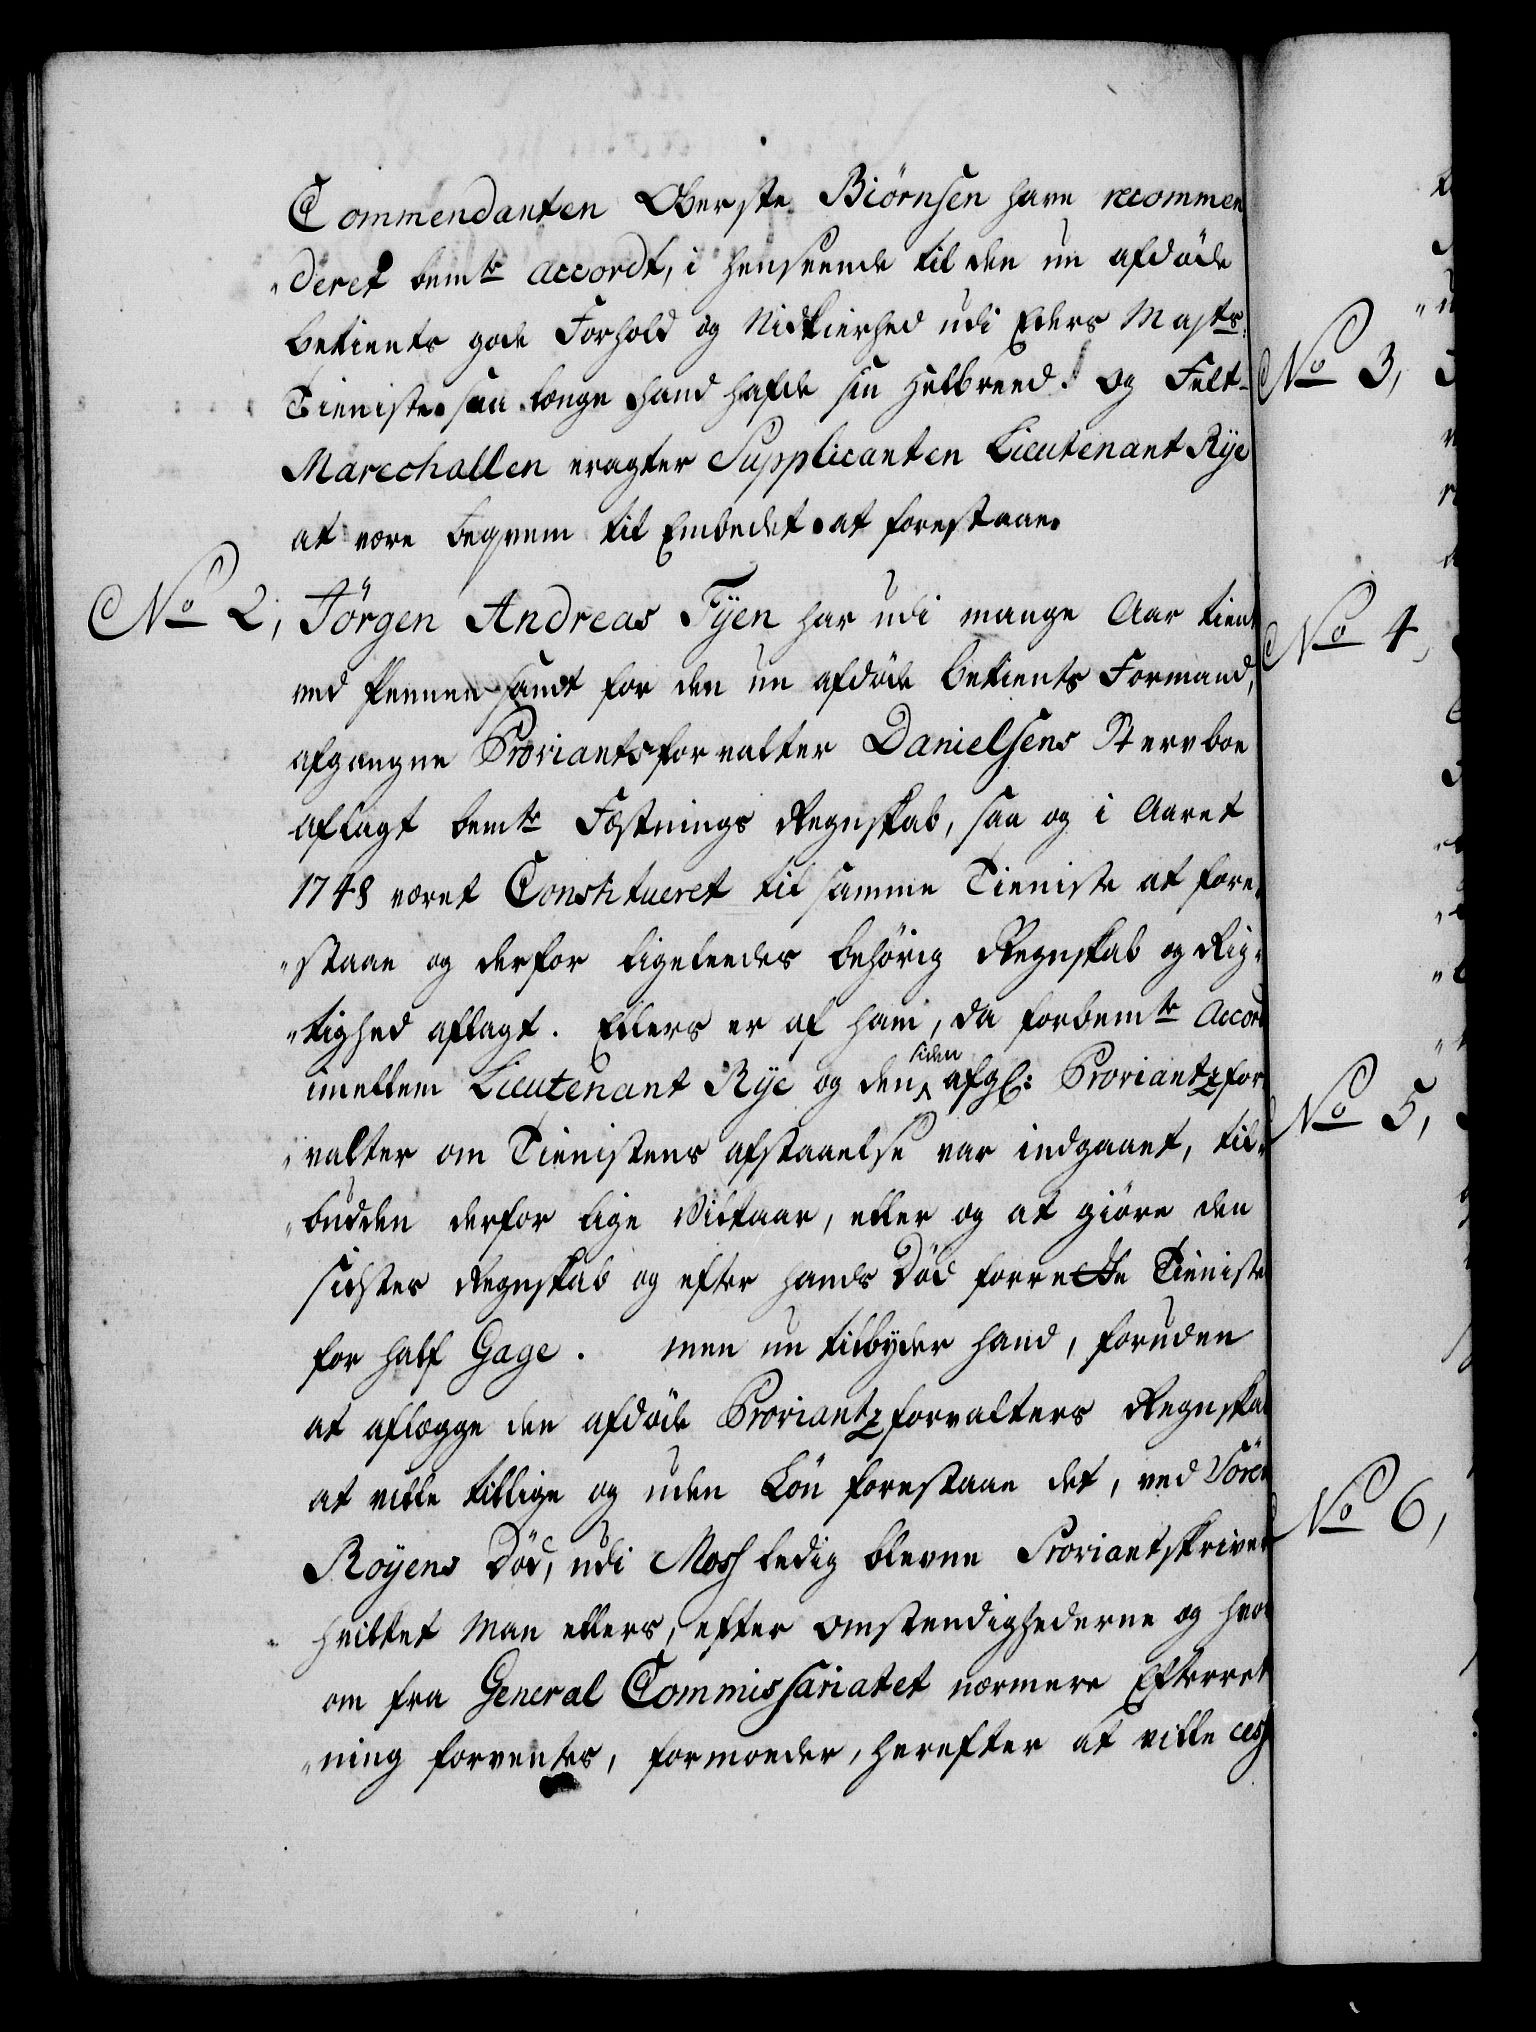 Commendanten Oberste Biörnsen have recommen
deret bemte Accordt, i henseende til den nu afdöde
betients gode Forhold og Nidkierhed udi Eders Mayts
Tieniste saa længe hand hafde sin Helbreed. Og Felt-
Marechallen eragter Supplicanten Lieutenant Rÿe
at være beqvem til Embedet at forestaae.
No 2, Jörgen Andreas Fÿen har udi mange Aar tient
ved Pennen samt for den nu afdöde betients Formand,
afgangne Proviantsforvalter Danielsens Stervboe
aflagt bemte Fæstnings Regnskab, saa og i Aaret
1748 været Constitueret til samme Tieniste at fore
staae og derfor ligeleedes behörig Regnskab og Rig-
tighed aflagt. Ellers er af ham, da forbemte Accord
imellem Lieutenant Rÿe og den siden afgl: Proviantzfor
valter om Tienistens afstaaelse var indgaaet, til-
budden derfor lige Vilkaar, eller og at giöre den
sidstes Regnskab og efter hands Död forrette Tieniste
for half Gage. men nu tilbyder hand, foruden
at aflægge den afdöde Proviantzforvalters Regnskab
at ville tillige og uden Lön forestaae det, ved Sören
Royens Död, udi Moss ledig blevne Proviantskriver
hvilket Man ellers, efter omstendighederne og hvor
om fra General Commissariatet nærmere Efterret
ning forventes, formoeder, herefter at ville cess
No 3,
No 4,
No 5,
No 6,